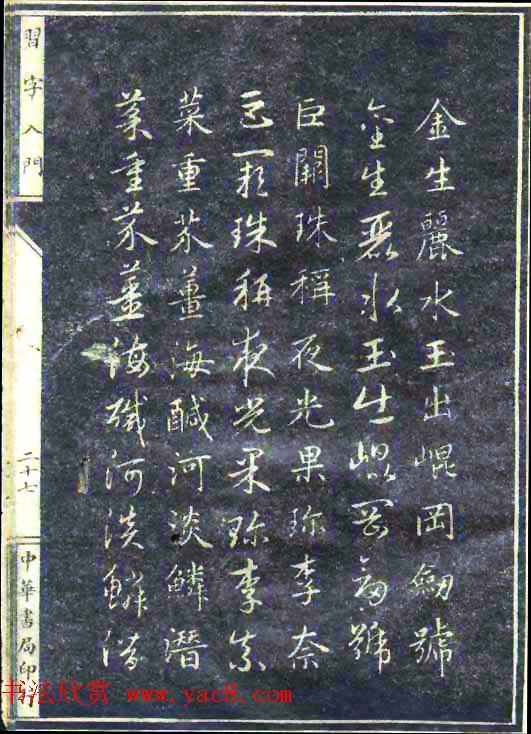 金生麗水玉出崐岡劒號
金生麗水玉出崐岡劒號
巨闕珠稱夜光果珍李奈
巨闕珠稱夜光果珍李奈
菜重芥薑海醎河淡鱗潛
菜重芥薑海醎河淡鱗潛
習字入門
二十七
中華書局印行
书法欣赏 www.yac8.com